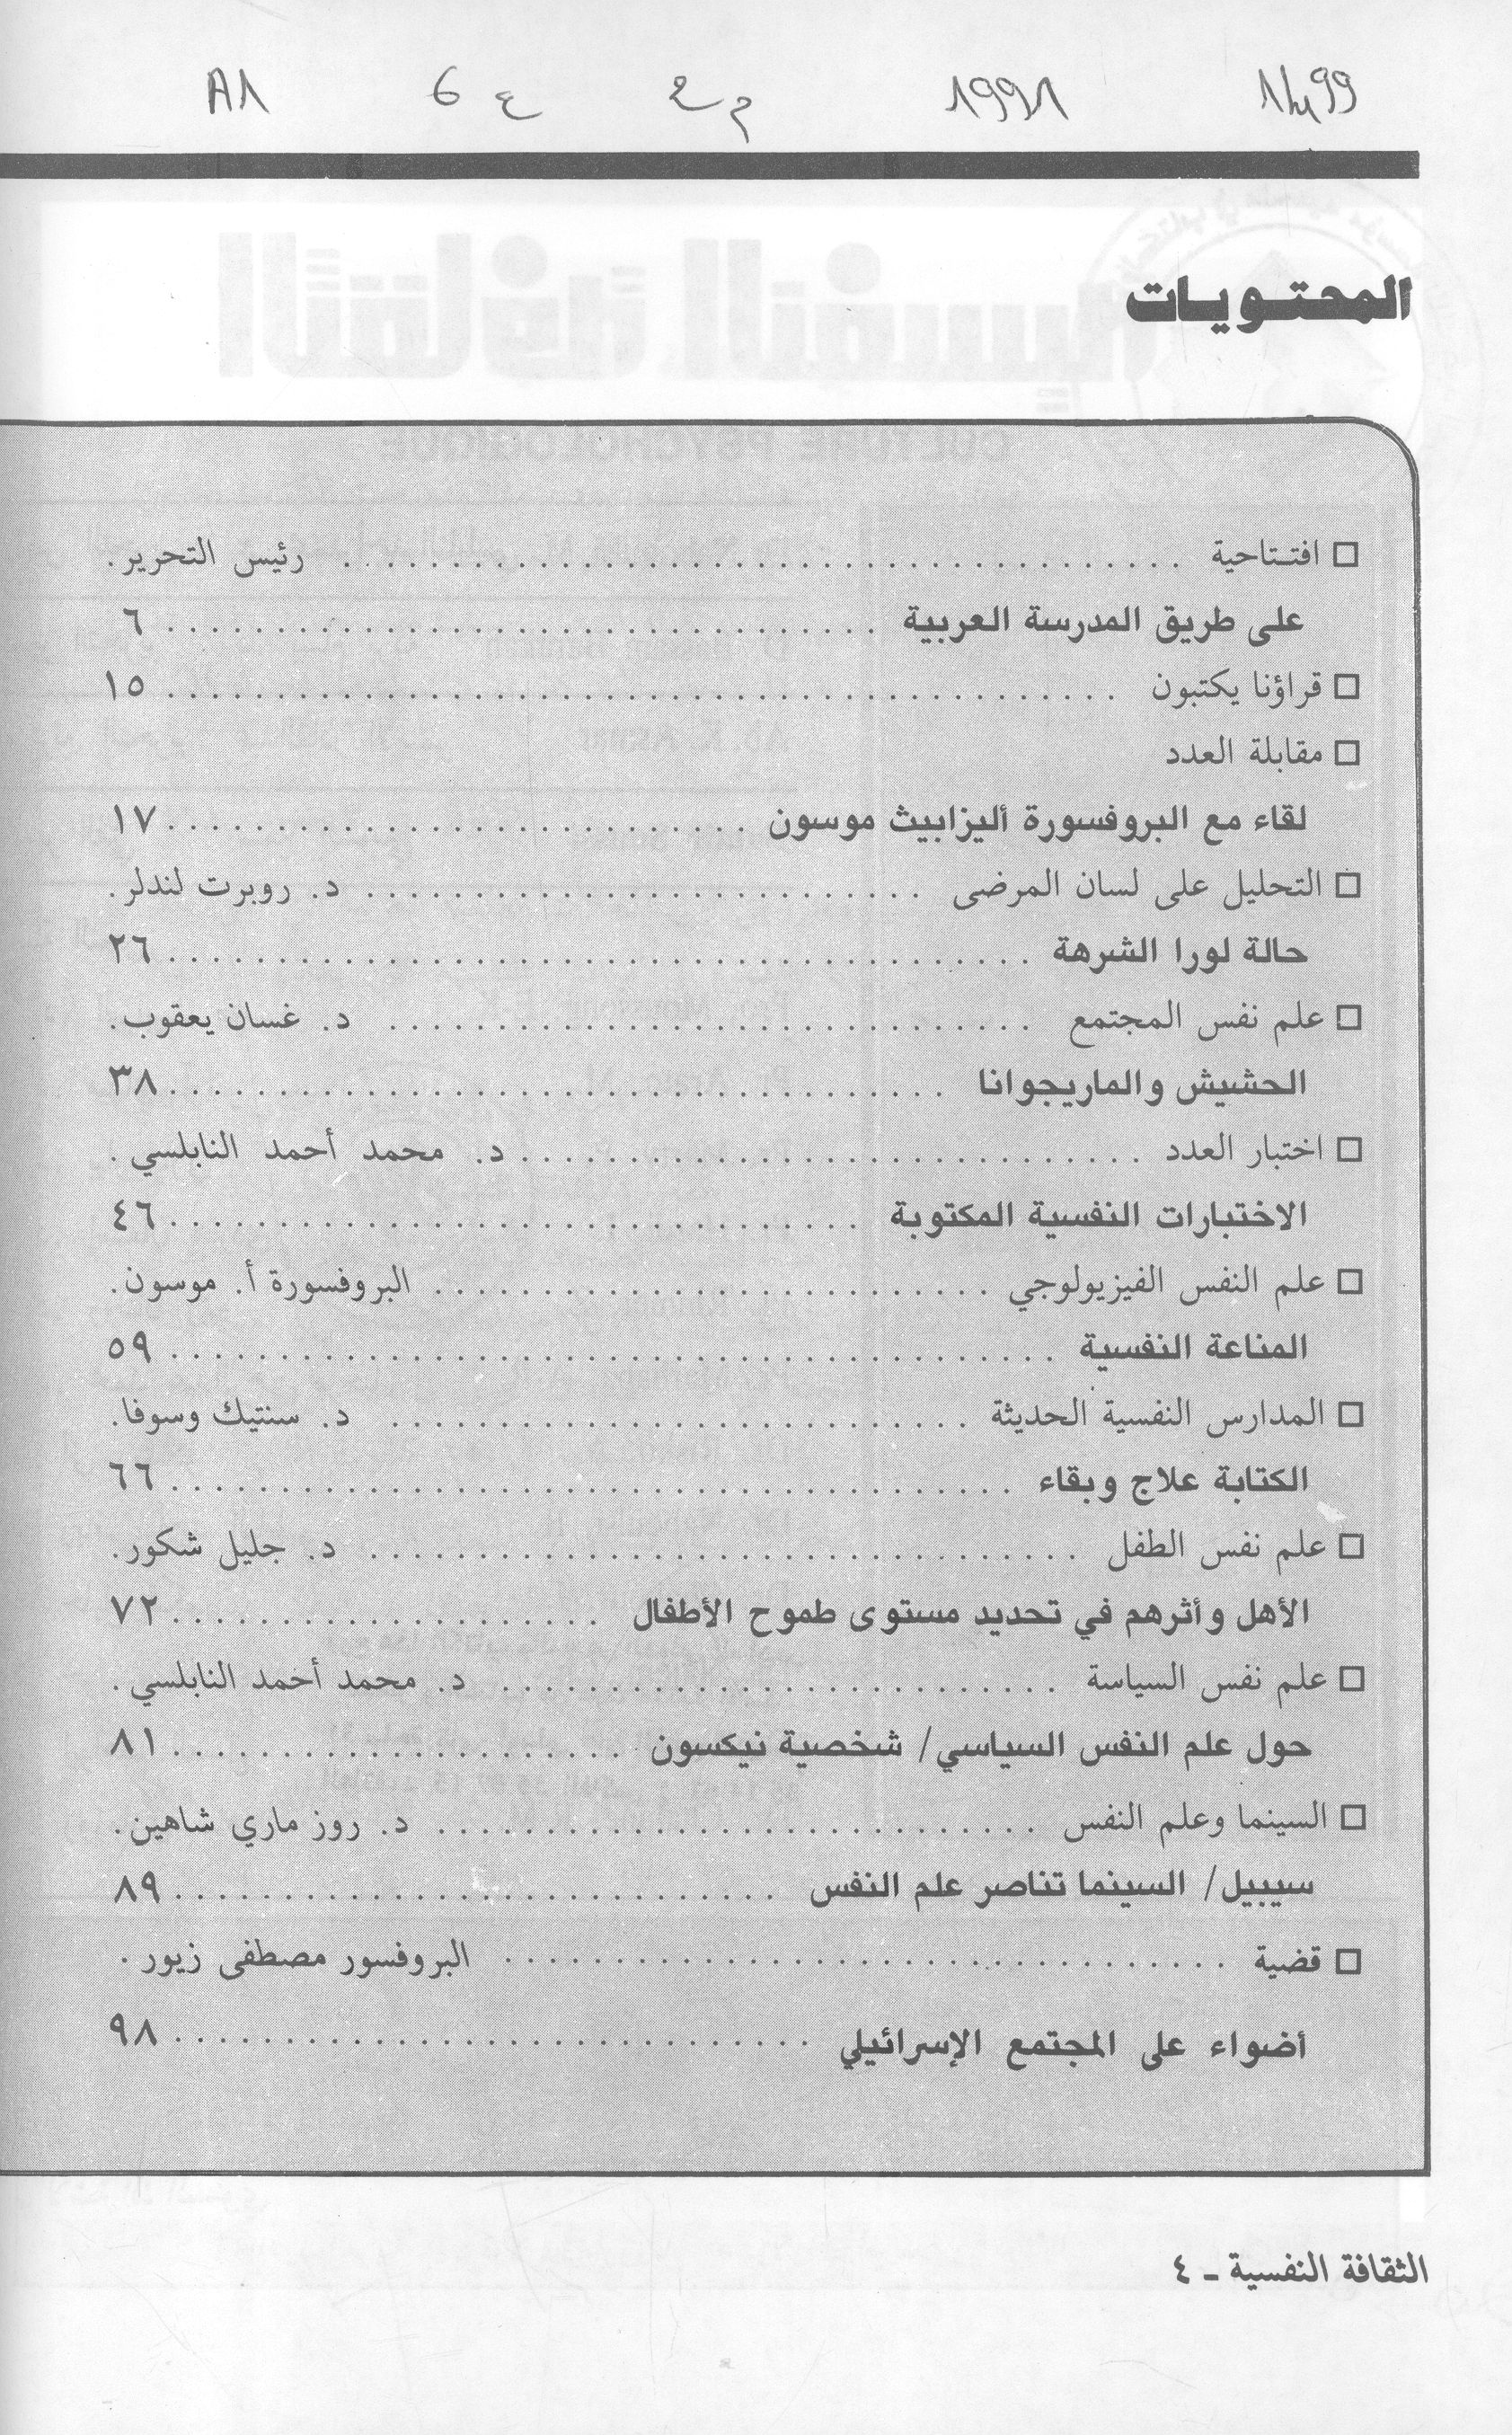 1499 1991 م2 ع 6 A1
المحتويات
□ افتتاحية ........ رئيس التحرير.
على طريق المدرسة العربية ........ ٦
□ قراؤنا يكتبون ........ ١٥
□ مقابلة العدد
لقاء مع البروفسورة أليزابيث موسون ........ ١٧
□ التحليل على لسان المرضى ........ د. روبرت لندلر.
حالة لورا الشرهة ........ ٢٦
□ علم نفس المجتمع ........ د. غسان يعقوب.
الحشيش والماريجوانا ........ ٣٨
□ اختبار العدد ........ د. محمد أحمد النابلسي.
الاختبارات النفسية المكتوبة ........ ٤٦
□ علم النفس الفيزيولوجي ........ البروفسورة أ. موسون.
المناعة النفسية ........ ٥٩
□ المدارس النفسية الحديثة ........ د. سنتيك وسوفا.
الكتابة علاج وبقاء ........ ٦٦
□ علم نفس الطفل ........ د. جليل شكور.
الأهل وأثرهم في تحديد مستوى طموح الأطفال ........ ٧٢
□ علم نفس السياسة ........ د. محمد أحمد النابلسي.
حول علم النفس السياسي/ شخصية نيكسون ........ ٨١
□ السينما وعلم النفس ........ د. روز ماري شاهين.
سيبيل/ السينما تناصر علم النفس ........ ٨٩
□ قضية ........ البروفسور مصطفى زيور.
أضواء على المجتمع الإسرائيلي ........ ٩٨
الثقافة النفسية ـ ٤